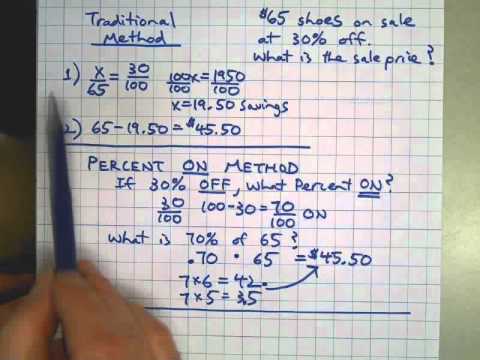 Traditional
Method
$65 shoes on sale
at 30% off.
What is the sale price?
1) x/65 = 30/100 100x/100 = 1950/100
x=19.50 savings
2) 65-19.50=$45.50
PERCENT ON METHOD
If 30% OFF, what Percent ON?
30/100 100-30=70/100 ON
What is 70% of 65?
.70 • 65 =$45.50
7×6=42.
7×5=3.5